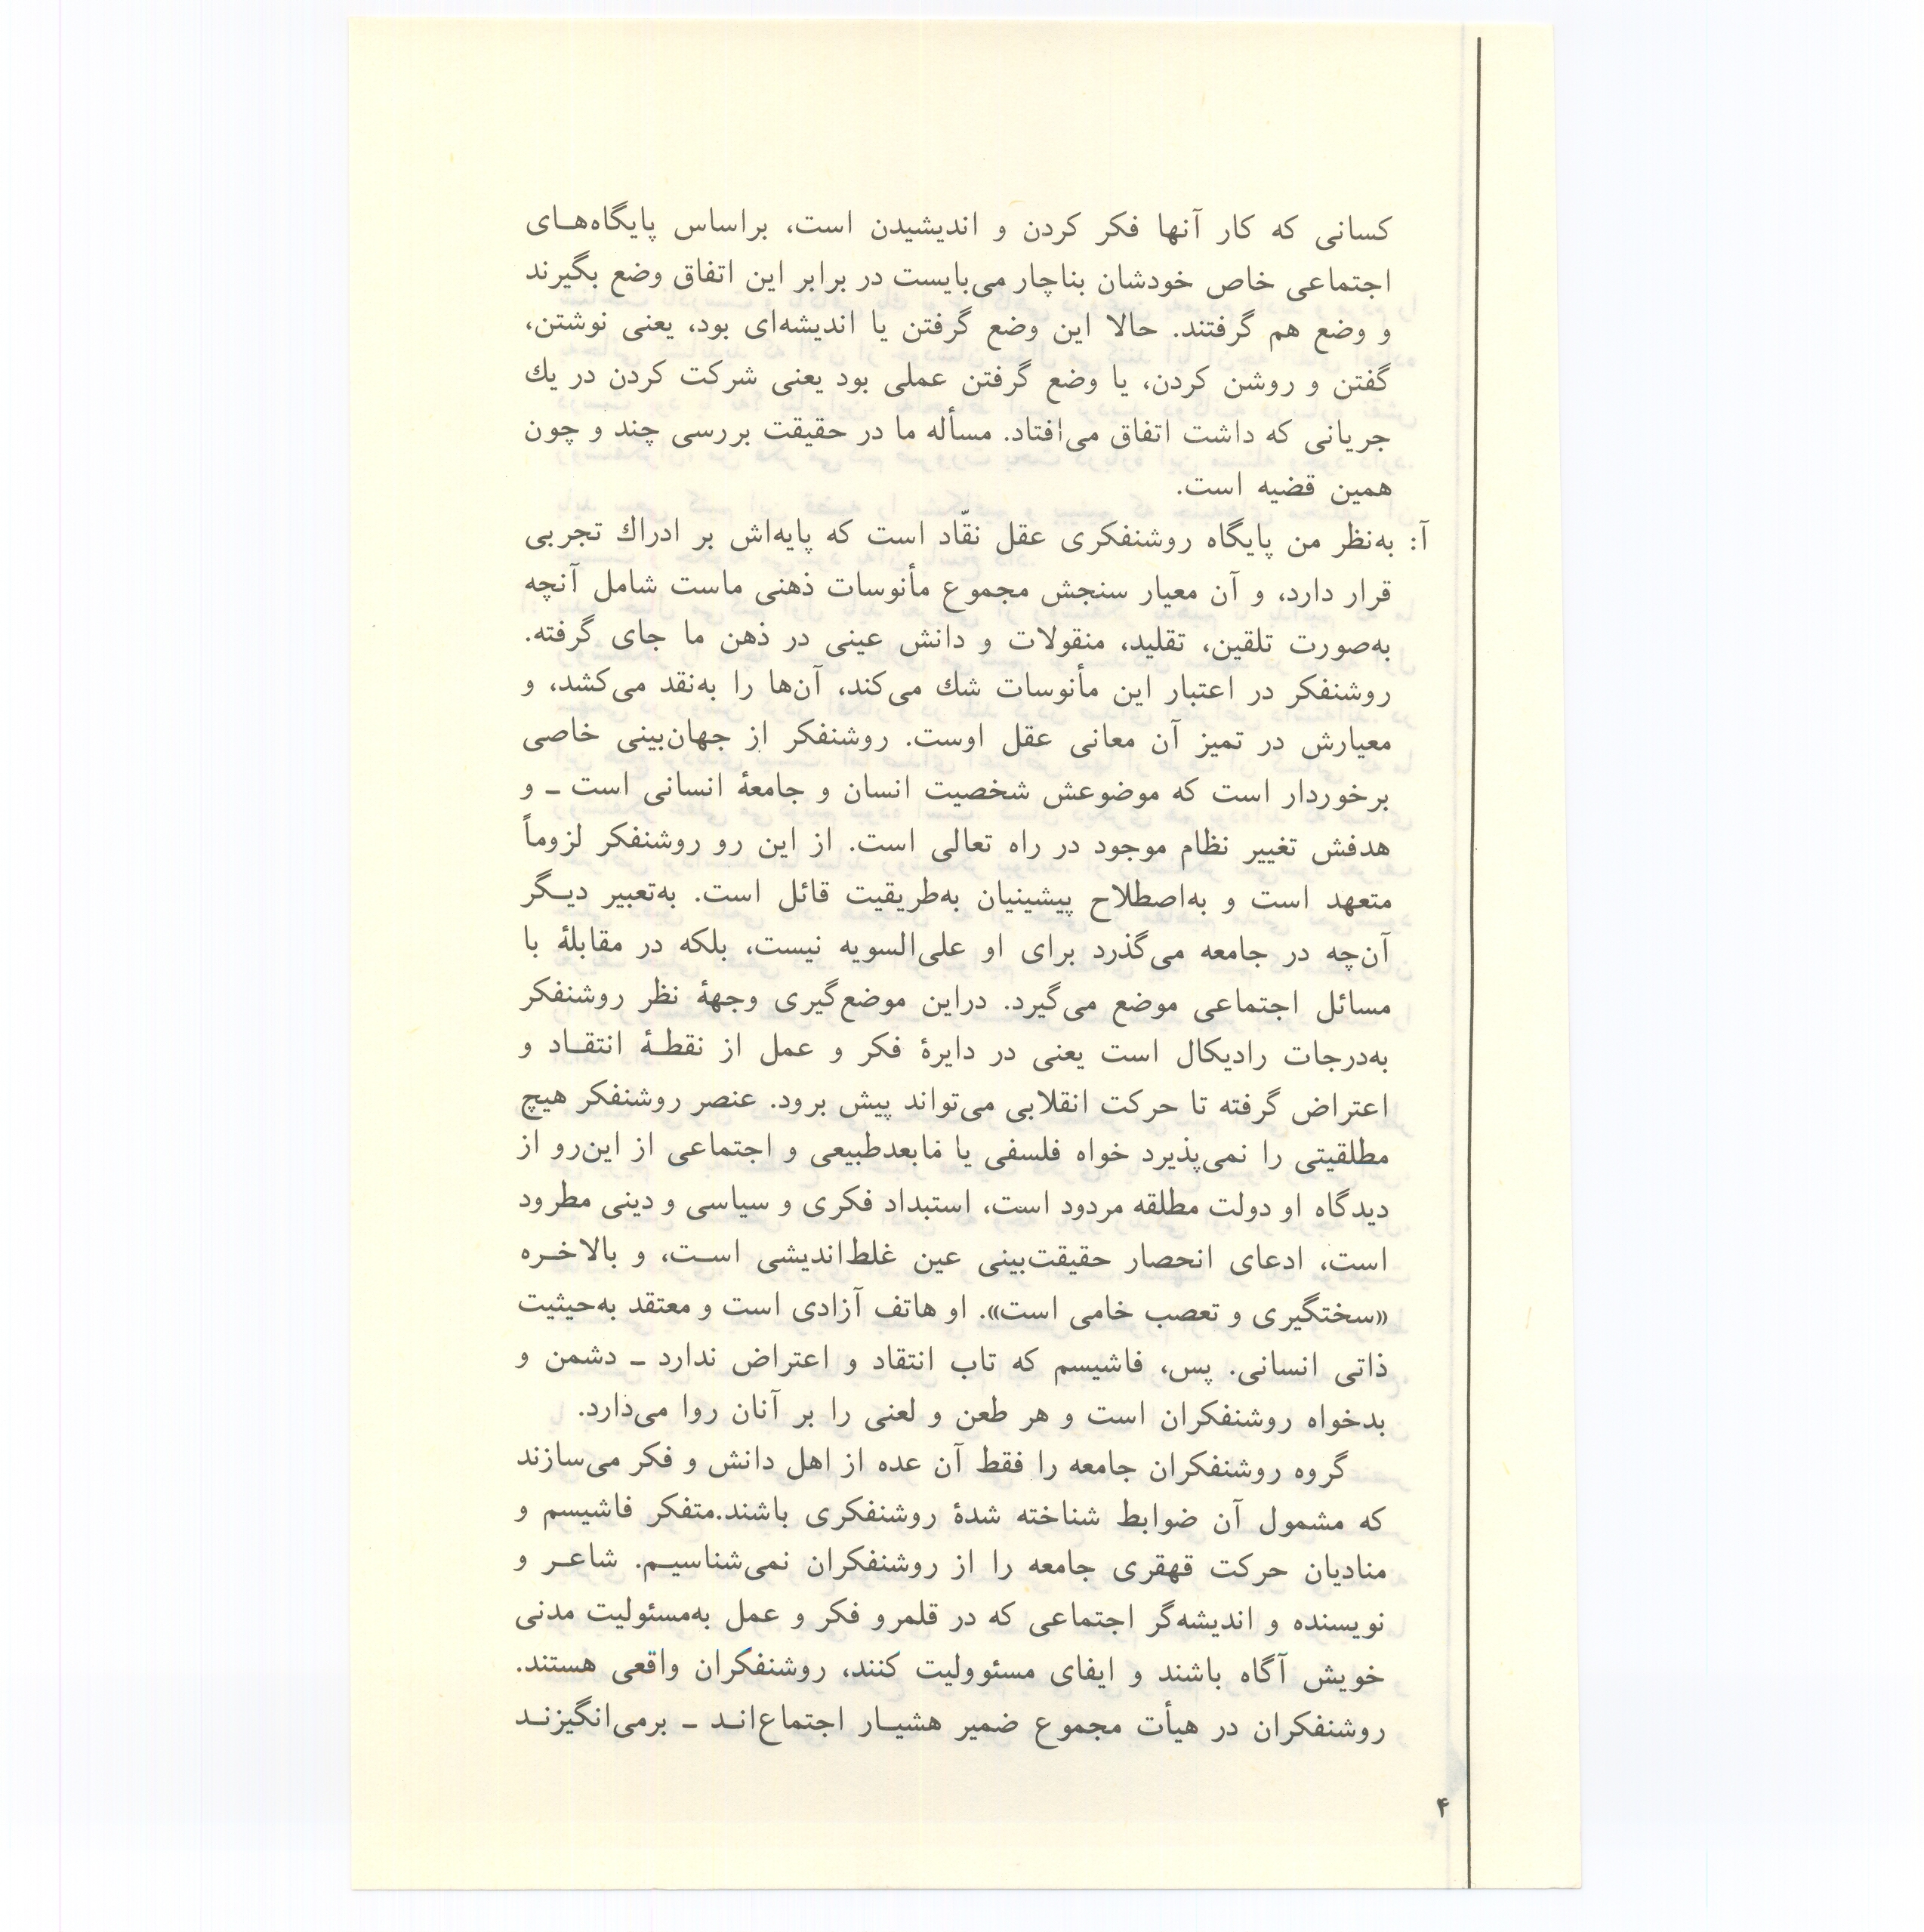 کسانی که کار آنها فکر کردن و اندیشیدن است، براساس پایگاه‌های
اجتماعی خاص خودشان بناچار می‌بایست در برابر این اتفاق وضع بگیرند
و وضع هم گرفتند. حالا این وضع گرفتن یا اندیشه‌ای بود، یعنی نوشتن،
گفتن و روشن کردن، یا وضع گرفتن عملی بود یعنی شرکت کردن در یك
جریانی که داشت اتفاق می‌افتاد. مسأله ما در حقیقت بررسی چند و چون
همین قضیه است.
آ: به‌نظر من پایگاه روشنفکری عقل نقّاد است که پایه‌اش بر ادراك تجربی
قرار دارد، و آن معیار سنجش مجموع مأنوسات ذهنی ماست شامل آنچه
به‌صورت تلقین، تقلید، منقولات و دانش عینی در ذهن ما جای گرفته.
روشنفکر در اعتبار این مأنوسات شك می‌کند، آن‌ها را به‌نقد می‌کشد، و
معیارش در تمیز آن معانی عقل اوست. روشنفکر از جهان‌بینی خاصی
برخوردار است که موضوعش شخصیت انسان و جامعهٔ انسانی است ـ و
هدفش تغییر نظام موجود در راه تعالی است. از این رو روشنفکر لزوماً
متعهد است و به‌اصطلاح پیشینیان به‌طریقیت قائل است. به‌تعبیر دیـگر
آن‌چه در جامعه می‌گذرد برای او علی‌السویه نیست، بلکه در مقابلهٔ با
مسائل اجتماعی موضع می‌گیرد. دراین موضع‌گیری وجههٔ نظر روشنفکر
به‌درجات رادیکال است یعنی در دایرهٔ فکر و عمل از نقطـهٔ انتقـاد و
اعتراض گرفته تا حرکت انقلابی می‌تواند پیش برود. عنصر روشنفکر هیچ
مطلقیتی را نمی‌پذیرد خواه فلسفی یا مابعدطبیعی و اجتماعی از این‌رو از
دیدگاه او دولت مطلقه مردود است، استبداد فکری و سیاسی و دینی مطرود
است، ادعای انحصار حقیقت‌بینی عین غلط‌اندیشی اسـت، و بالاخـره
«سختگیری و تعصب خامی است». او هاتف آزادی است و معتقد به‌حیثیت
ذاتی انسانی. پس، فاشیسم که تاب انتقاد و اعتراض ندارد ـ دشمن و
بدخواه روشنفکران است و هر طعن و لعنی را بر آنان روا می‌دارد.
گروه روشنفکران جامعه را فقط آن عده از اهل دانش و فکر می‌سازند
که مشمول آن ضوابط شناخته شدهٔ روشنفکری باشند.متفکر فاشیسم و
منادیان حرکت قهقری جامعه را از روشنفکران نمی‌شناسیـم. شاعـر و
نویسنده و اندیشه‌گر اجتماعی که در قلمرو فکر و عمل به‌مسئولیت مدنی
خویش آگاه باشند و ایفای مسئوولیت کنند، روشنفکران واقعی هستند.
روشنفکران در هیأت مجموع ضمیر هشیـار اجتماع‌انـد ـ برمی‌انگیزنـد
۴